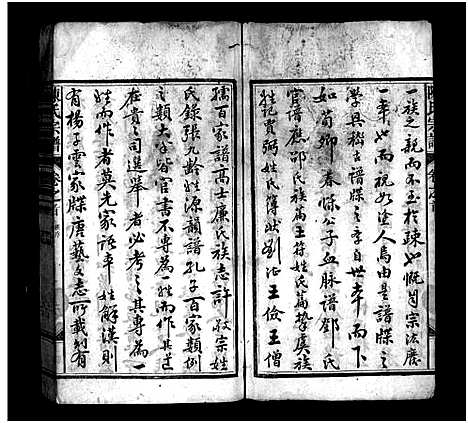 一族之親而不至於疎也慨自宗法廢
一本也而視如塗人焉由是譜牒之
學具嵇古譜牒之亭自世本而下
如荀卿春秋公子血脉譜鄧氏
官譜應邵氏族篇王符姓氏篇摯虞族
姓記賈弼姓氏簿狀劉湛王儉王僧
孺百家譜高士廉氏族志許敬宗姓
氏錄張九齡姓源韻譜孔子百家類例
之類大半皆官書不專為一姓而作其至
在貴之司選舉者必考之其專為一
姓而作者莫先家譜本姓解漢則
有楊子雲家牒唐藝文志所載則有
陳氏宗譜
卷之首